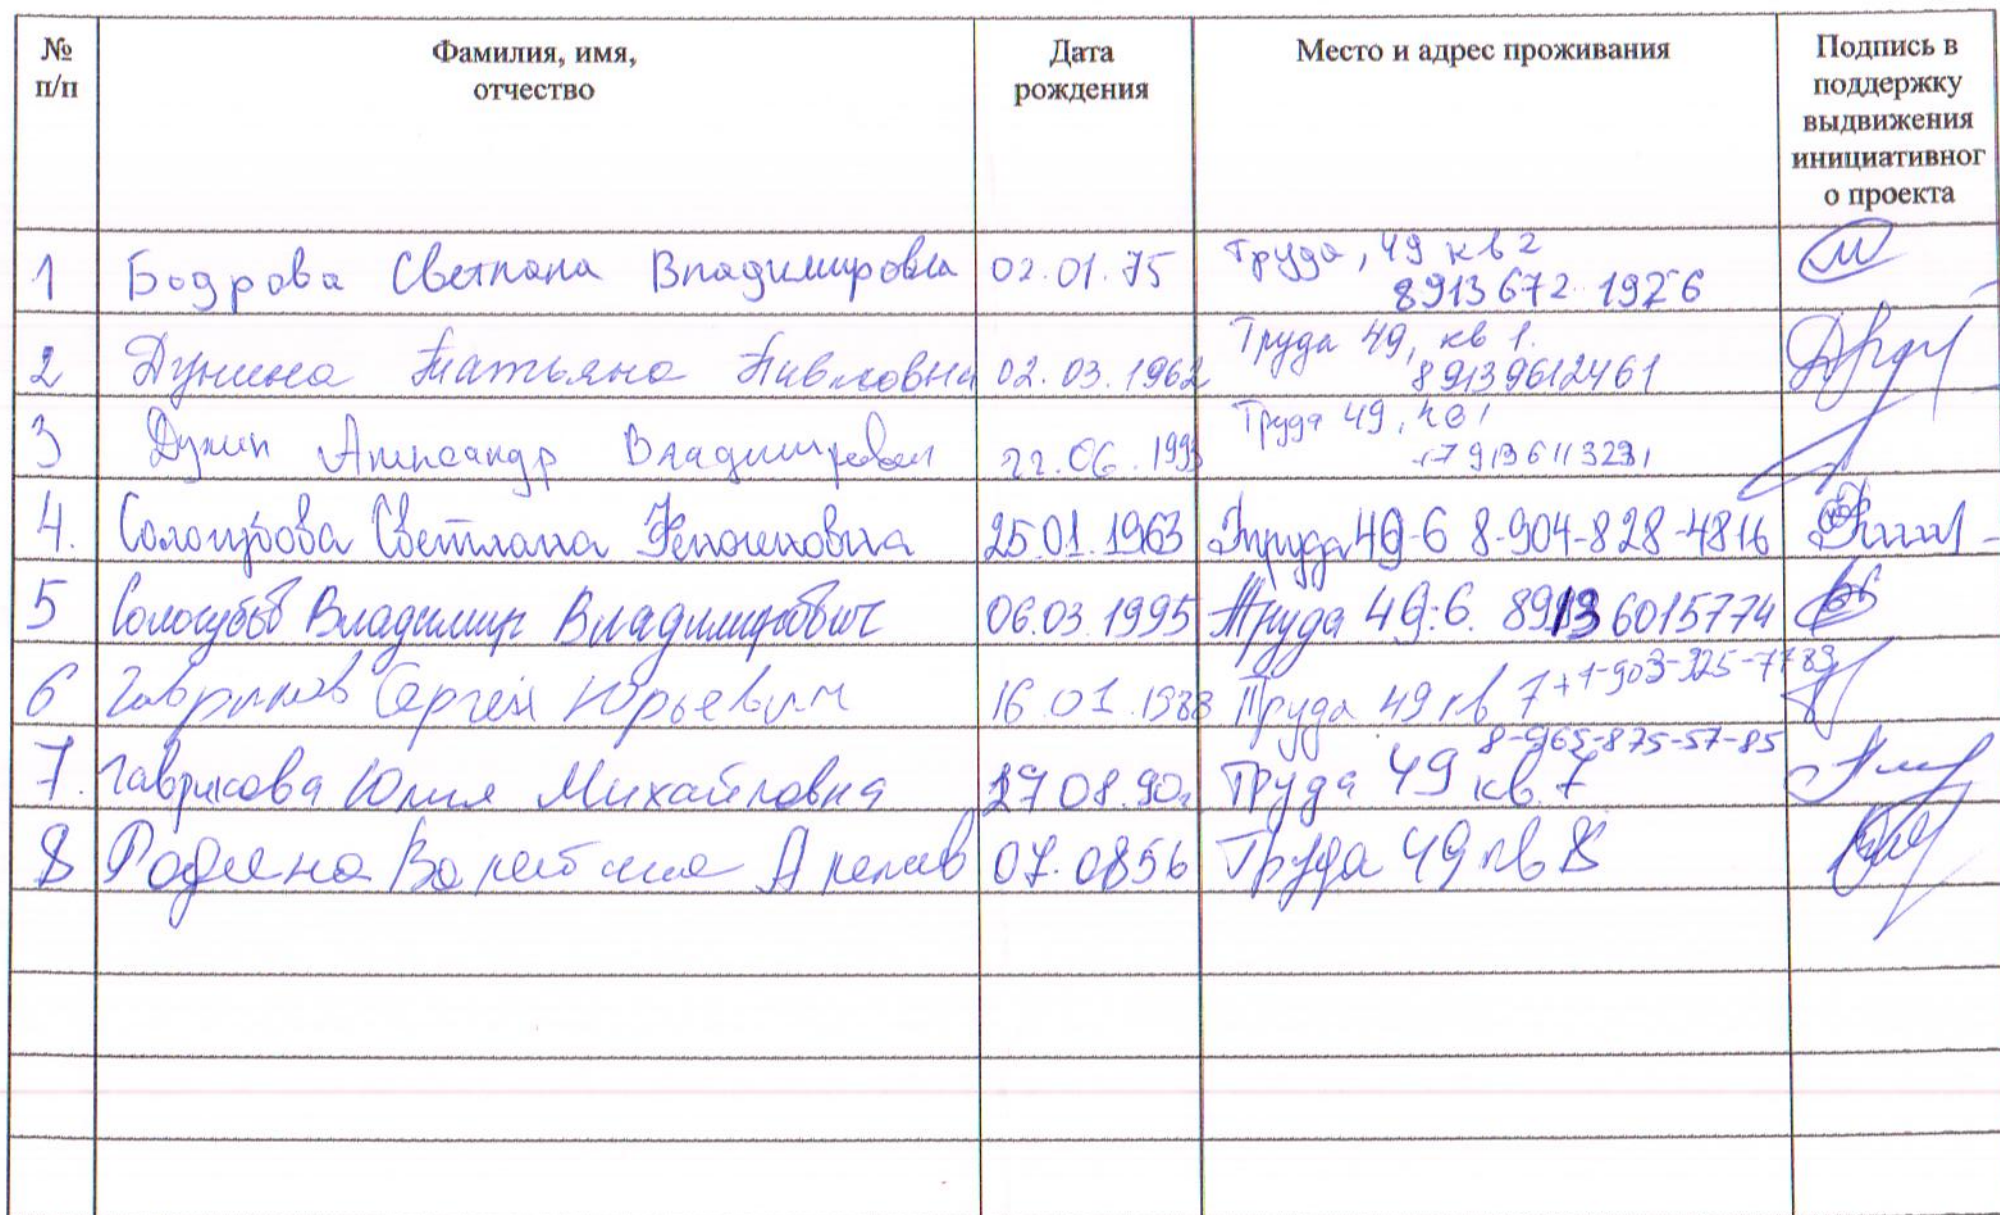 № п/п Фамилия, имя, отчество Дата рождения Место и адрес проживания Подпись в поддержку выдвижения инициативног о проекта
1 Бодрова Светлана Владимировна 02.01.75 Труда, 49 кв 2
8913 672 1926
2 Дунина Татьяна Павловна 02.03.1962 Труда 49, кв 1.
89139612461
3 Дунин Александр Владимирович 22.06.1993 Труда 49, кв 1
+79136113231
4. Сологубова Светлана 25.01.1963 Труда 49-6 8-904-828-4816
5 Сологубов Владимир Владимирович 06.03.1995 Труда 49-6. 89136015774
6 Гавриков Сергей Юрьевич 16.01.1988 Труда 49 кв 7
7. Гаврикова Юлия Михайловна 27.08.90г Труда 49 кв. 7
8-965-875-57-85
8 Родина Валентина 07.0856 Труда 49 кв 8